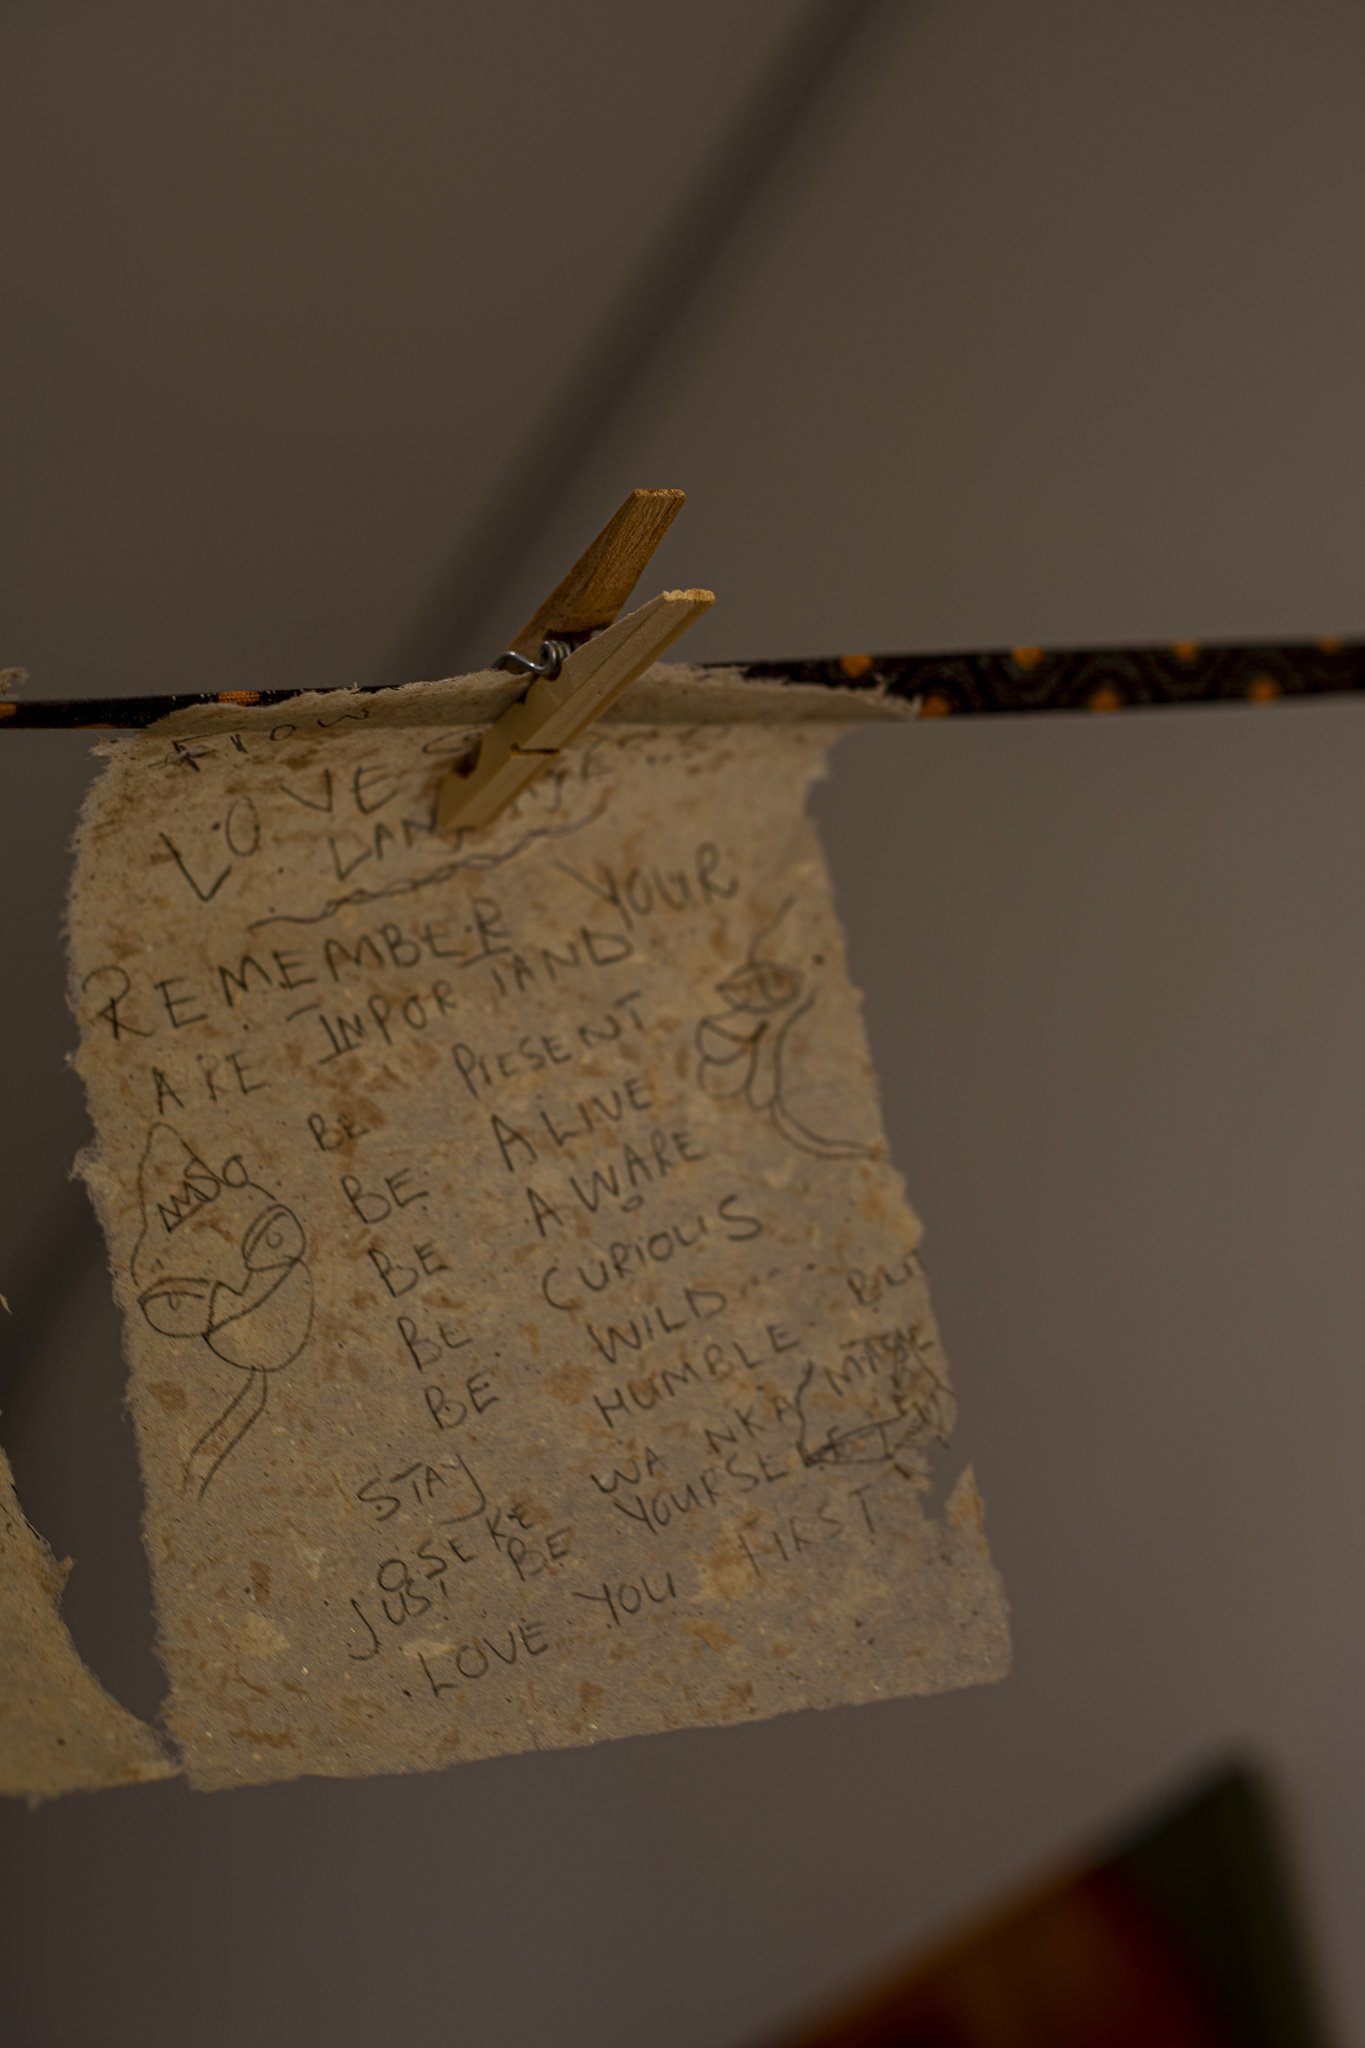 Flow
LOVE
REMEMBER YOUR
ARE IMPORTAND
BE PRESENT
BE ALIVE
BE AWARE
BE CURIOUS
BE WILD....
BE HUMBLE BUT
STAY WA NKA
OSEKE YOURSELF
JUST BE
LOVE YOU FIRST